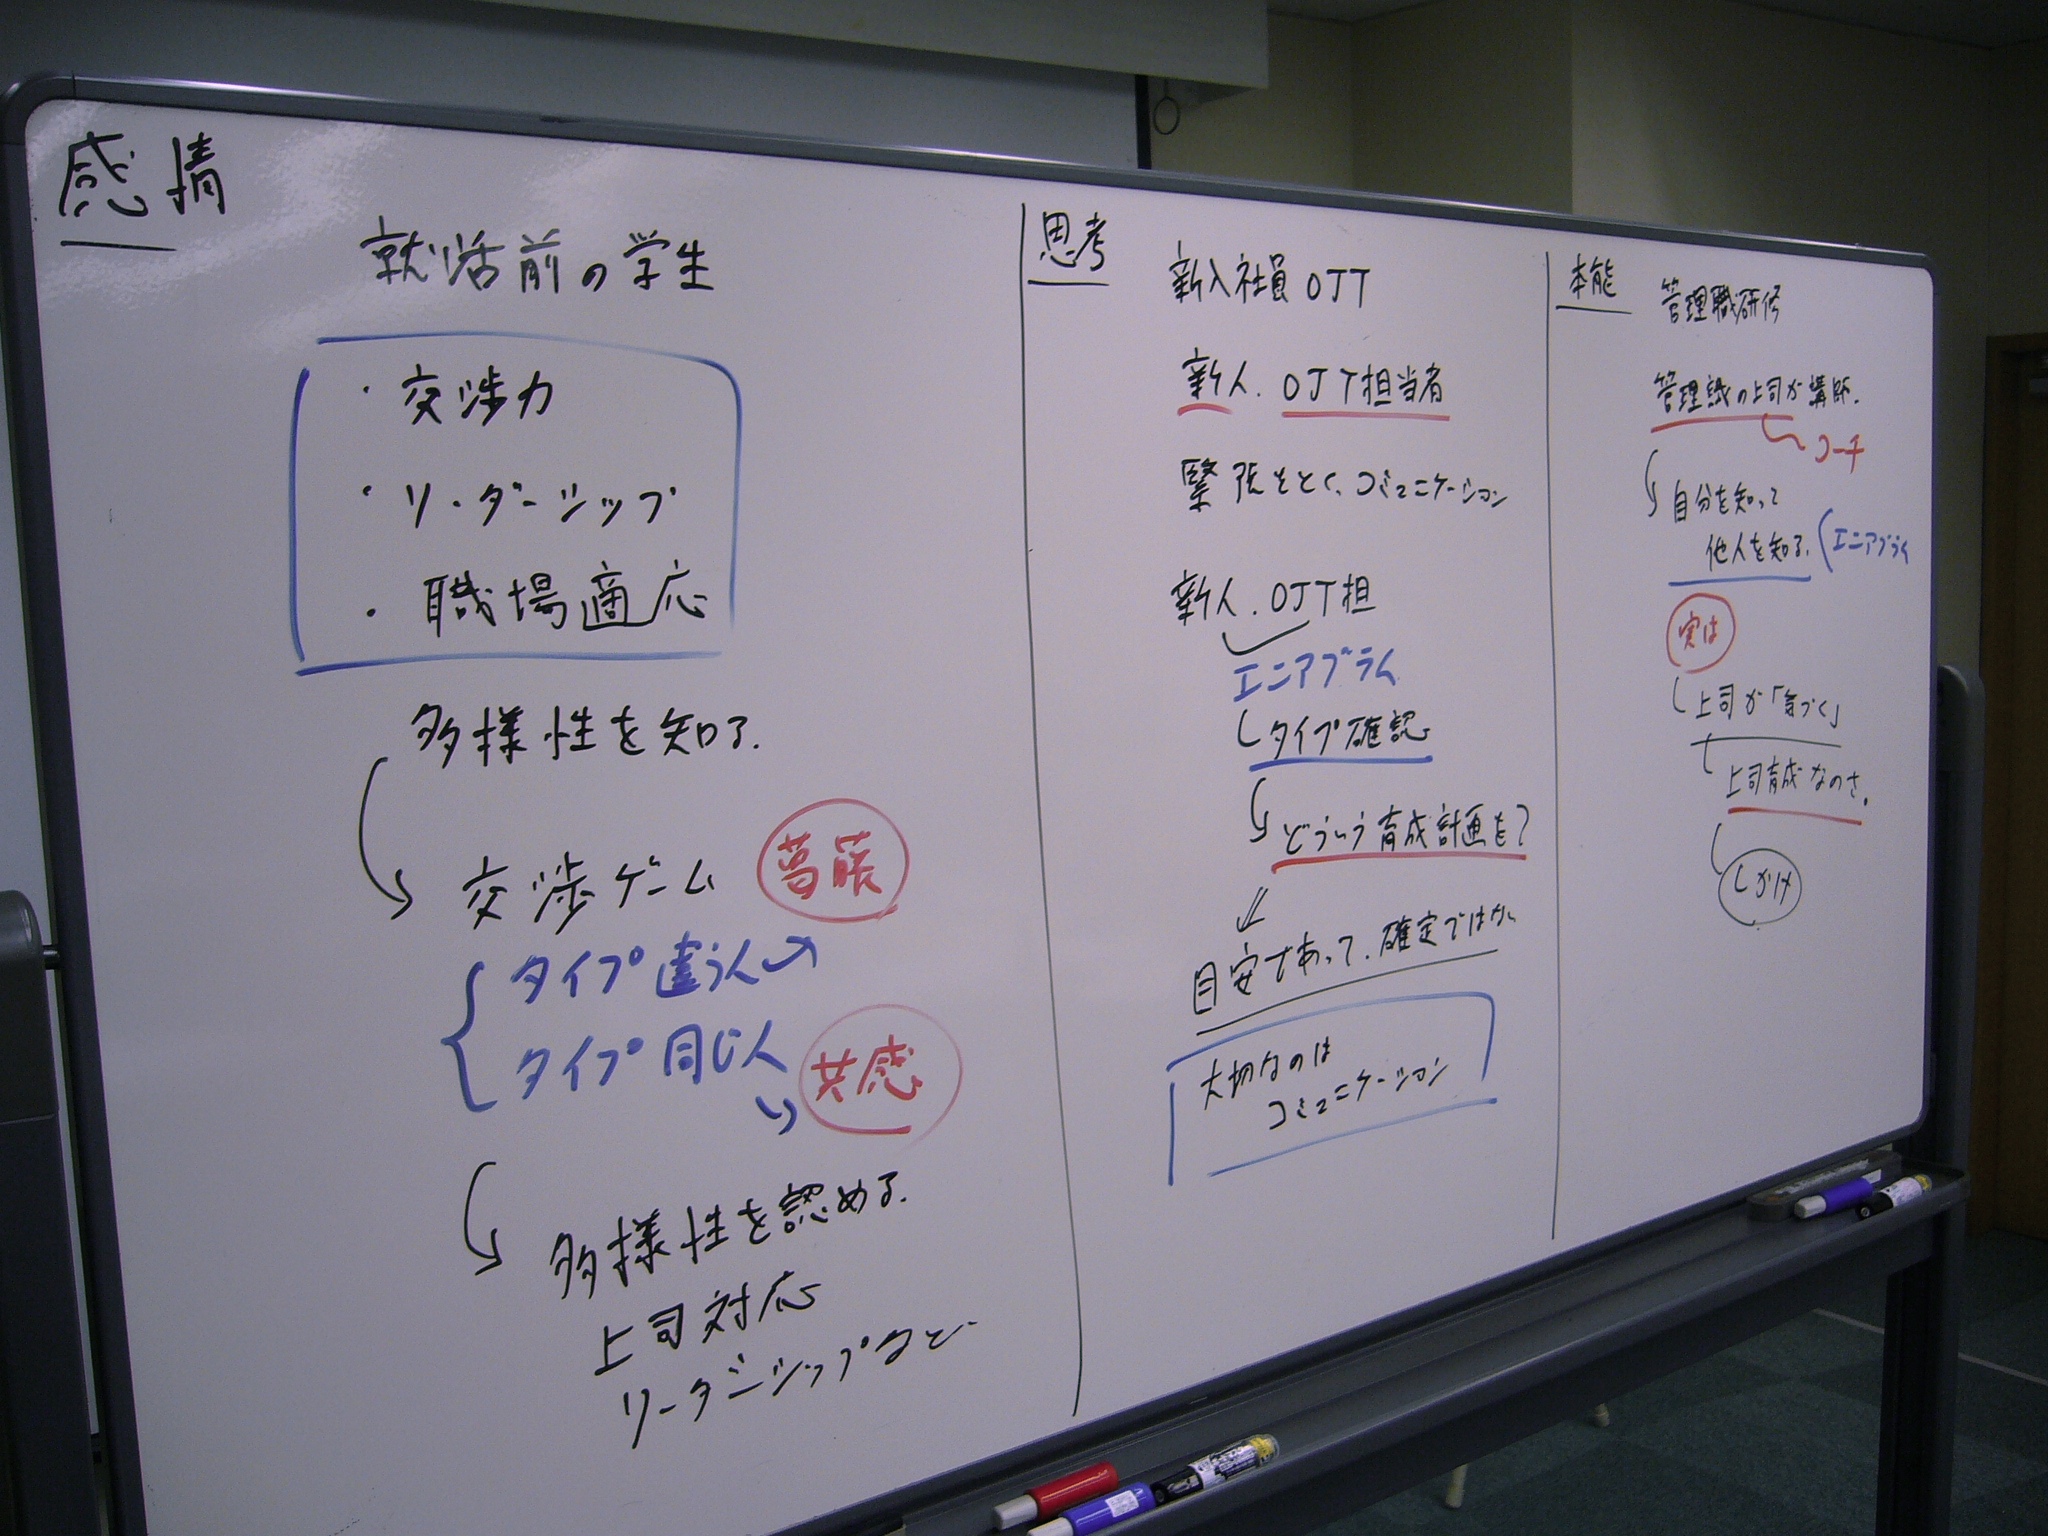 感情
就活前の学生
・交渉力
・リーダーシップ
・職場適応
多様性を知る.
交渉ゲーム
葛藤
タイプ違う人
タイプ同じ人
共感
多様性を認める.
上司対応
リーダーシップなど
思考
新入社員OJT
新人. OJT担当者
緊張をとく、コミュニケーション
新人. OJT担
エニアグラム
タイプ確認
どういう育成計画を?
目安であって、確定ではない
大切なのは
コミュニケーション
本能
管理職研修
管理職の上司が講師.
コーチ
自分を知って
他人を知る.
エニアグラム
実は
上司が「気づく」
上司育成なのさ。
しかけ